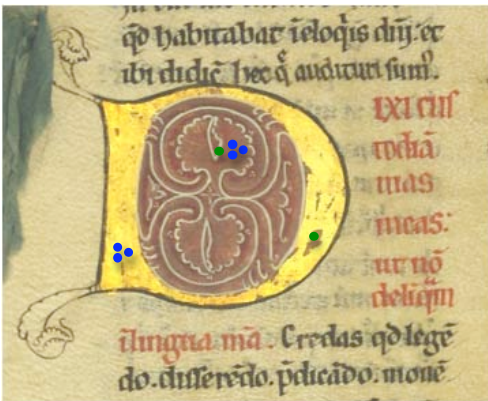 qd habitabat ieloq̄is diuī. et
ibi didic̄ hec q̄ audituri sum᷒.
DIXI CUS
todiā
uias
meas:
ut nō
delīqm̄
īlingua mā. Credas qd legē
do. disserēdo. p̄dicādo. monē